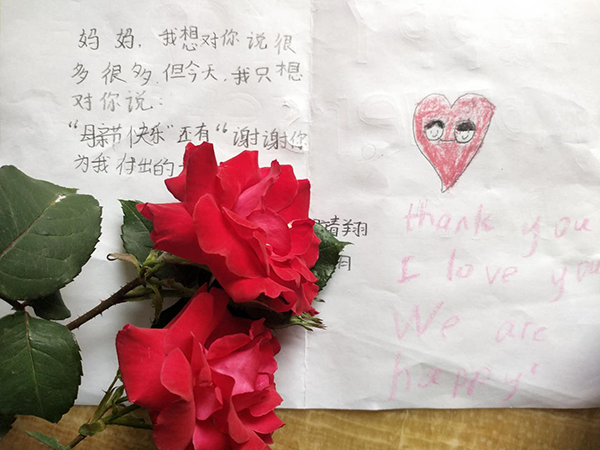 妈妈，我想对你说很
多很多，但今天，我只想
对你说：
“母亲节快乐”还有“谢谢你
为我付出的一
靖翔
thank you
I love you
We are
happy!